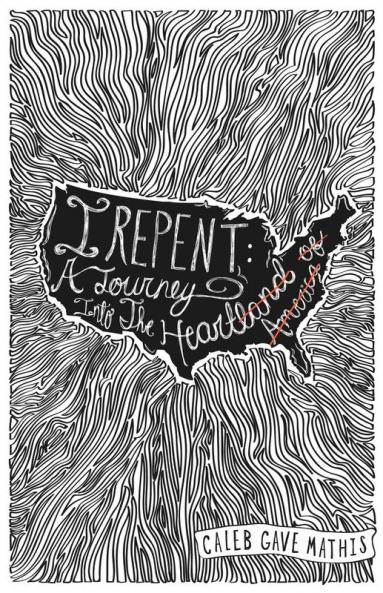 I REPENT:
A Journey
Into The Heartland of
America
CALEB GAVE MATHIS